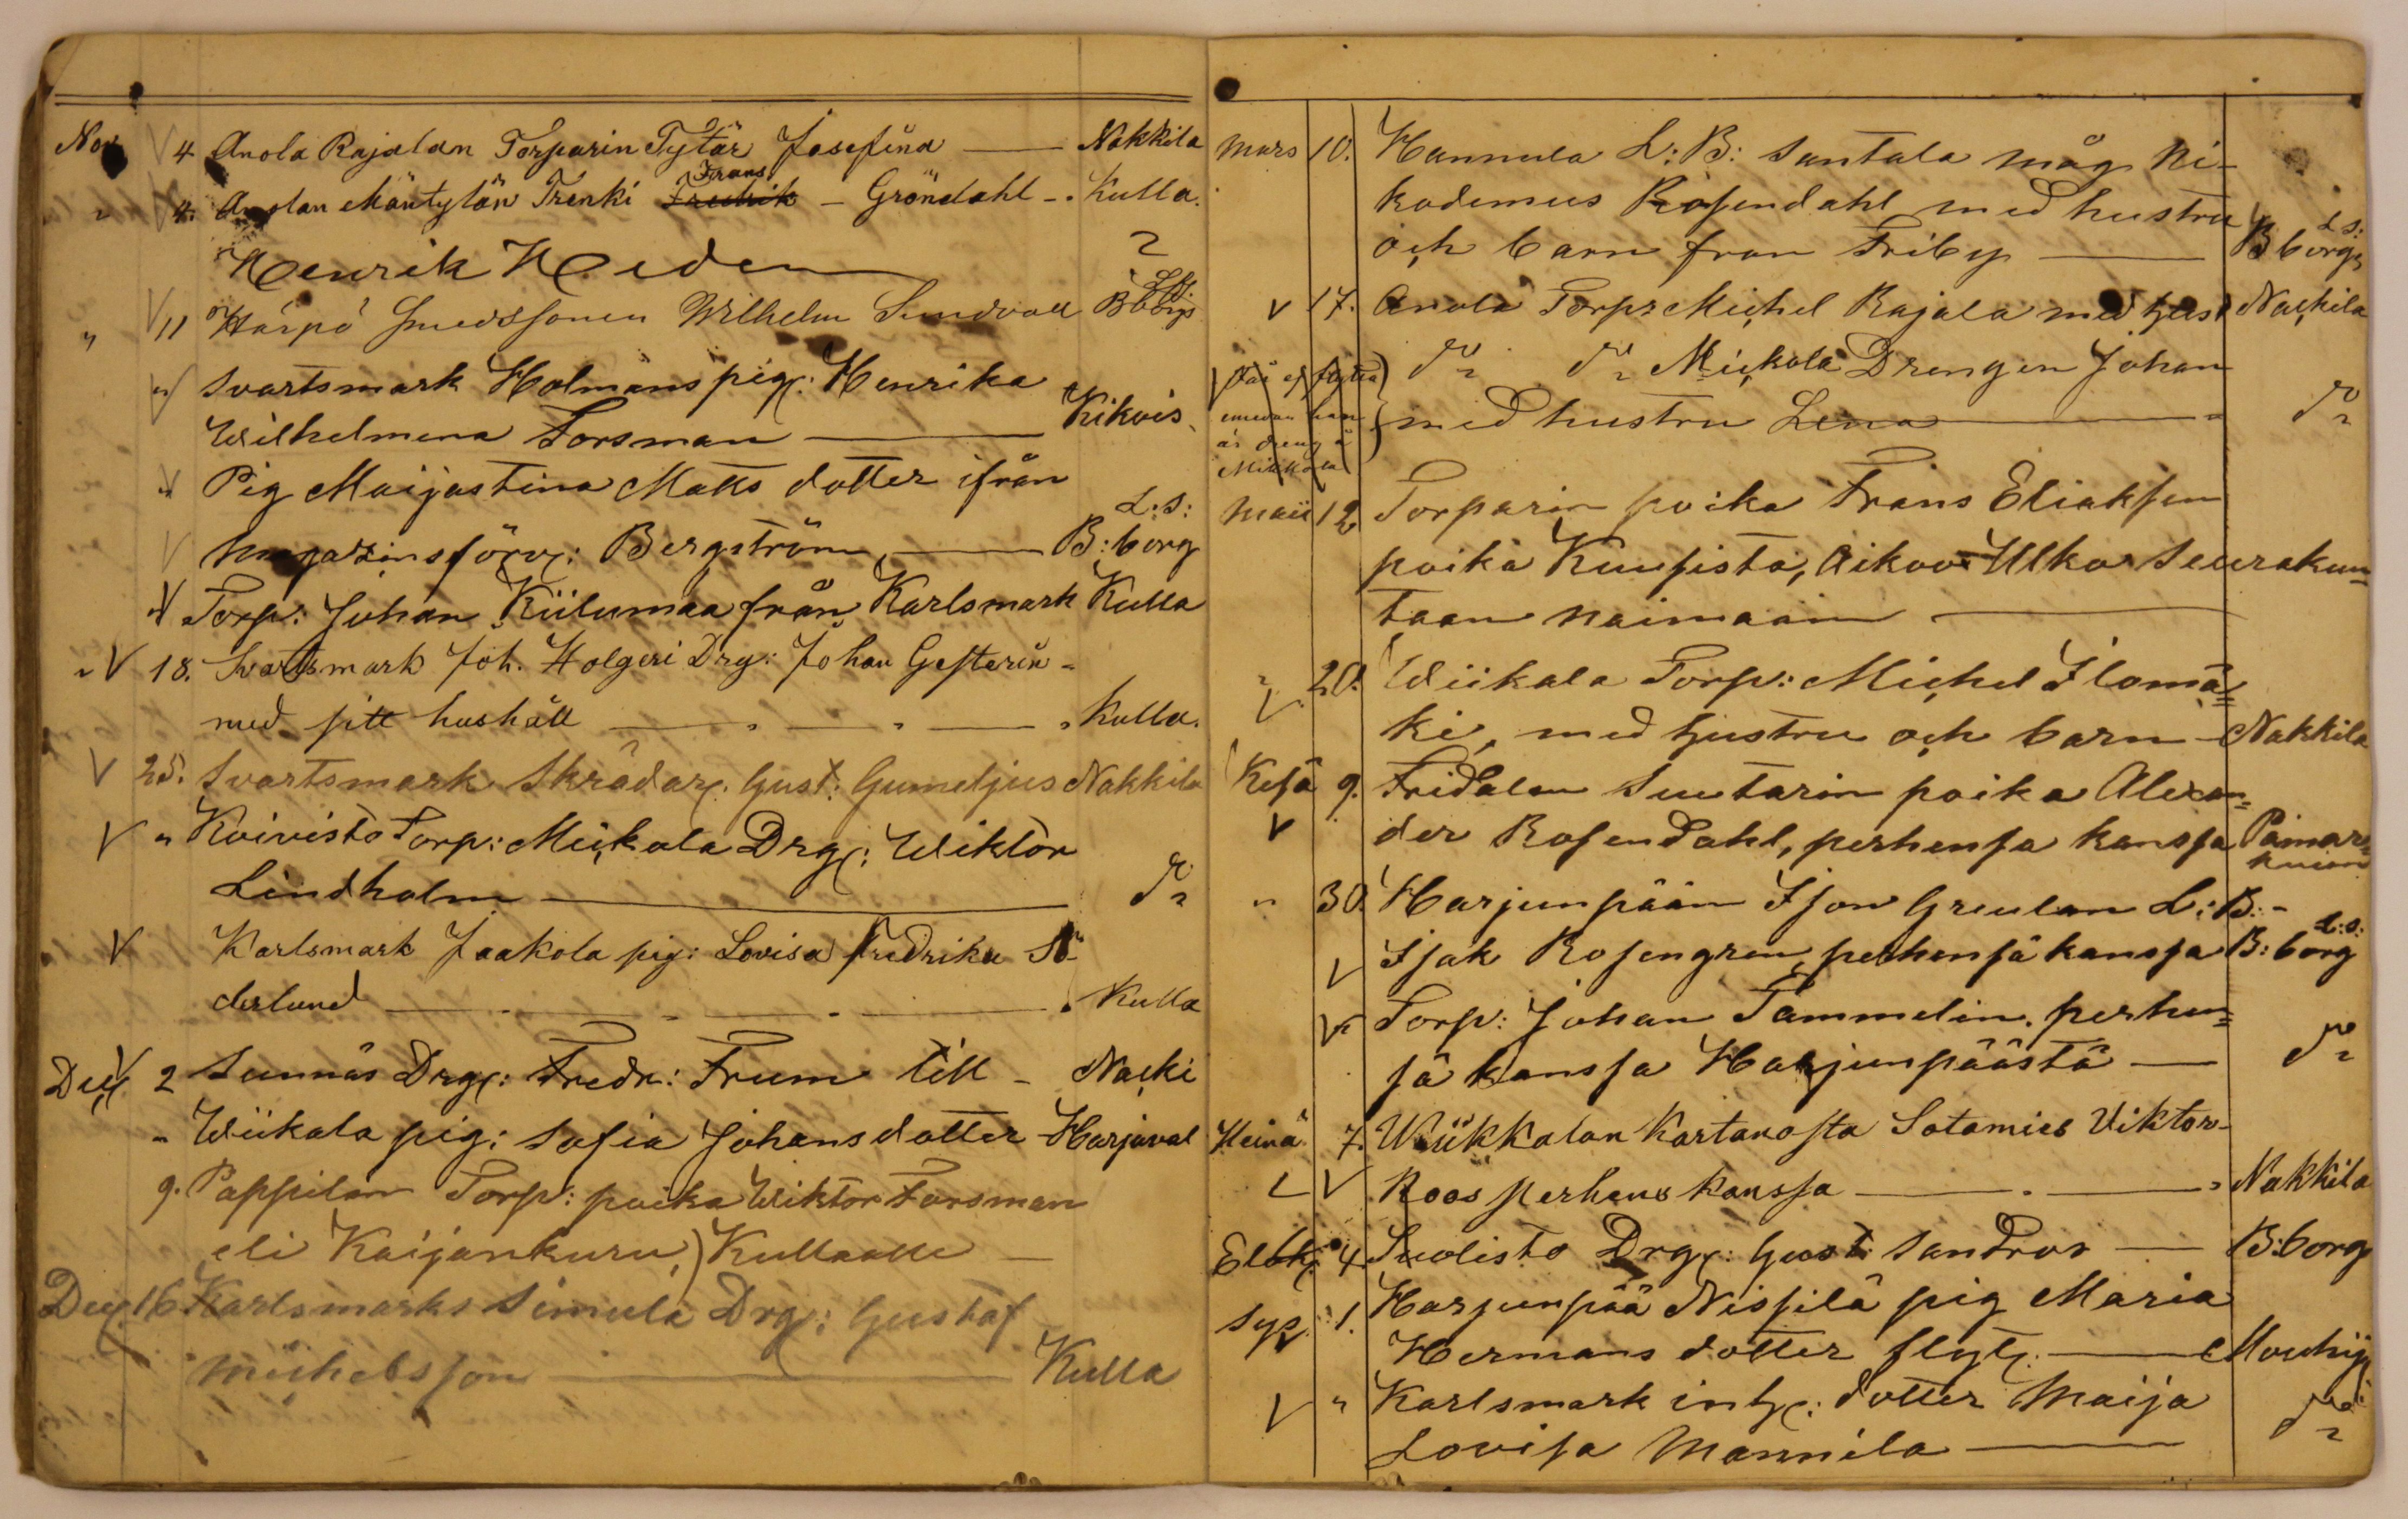 Nov V 4 Anola Rajalan Torparin Tytär Josefina — Nakkila
" V 4. Anolan Mäntylän Trenki Frans Fredrik – Gröndahl – Kulla.
Henrik Heden
" V 11 Härpö Smedssonen Wilhelm Sundvall L:S: B:borgs
" Svartsmark Holmäns pig: Henrika
Wilhelmina Forsman — Kikois
" Pig Maijastina Mats dotter ifrån
V magazinsförv: Bergström — L:S: B:borg
" V Torp: Johan Kiilumaa från Karlsmark Kulla
" V 18. Svartsmark Joh. Holgeri Drg: Johan Gesterin -
med sitt hushåll — Kulla.
V 25. Svartsmark Skrädar: Gust: Gumeljus Nakkila
V " Koivisto Torp: Mickola Drg: Wiktor
Lindholm — do
V Karlsmark Jaakola pig: Lovisa Fredrika Sö-
derlund — Kulla
Dec V 2 Sunnäs Drg: Fredr: Frum till – Nacki
" Wiikala pig: Sofia Johansdotter – Harjaval
9. Pappilan Torp: poika Wiktor Forsman
eli Kaijankuru,) Kullaalle —
Dec 16 Karlsmarks Simula Drg: Gustaf
Michelsson — Kulla
Mars 10. Hannula L:B: Santala måg Ni-
kodemus Rosendahl med hustru
och barn från Friby — L:S: B borgs
V 17. Anola Torpr Michel Rajala med hust Nackila
får ej flytta do do Mickola Drengen Johan
emedan han med hustru Lena — do
är dreng å
Mikkola
Maii 12 Torparin poika Frans Eliaksen
poika Kuusista, Aikoo Ulko Seurakun=
taan naimaan —
" V 20. Wiikala Torp: Michel Ilomä=
ki, med hustru och barn – Nakkila
Kesä 9. Fridalan Suutarin poika Alexan=
V der Rosendahl, perhensä kanssa Pämar=
kuum
" 30. Harjunpään Ison Greulan L:B: -
V Isak Rosengren perhensä kanssa L:S: B:borg
V Torp: Johan Tammelin. perhen=
sä kanssa Harjunpäästä — do
Heinä 7. Wiikkalan Kartanosta Sotamies Viktor
V Roos perhens kanssa — Nakkila
Elok: 4 Suolisto Drg: Gust: Sandros — B:borg
Sys. 1. Harjunpää Nissilä pig Maria
Hermans dotter flyt: — Mouhij
V " Karlsmark inh: dotter Maija
Lovisa Mannila — do